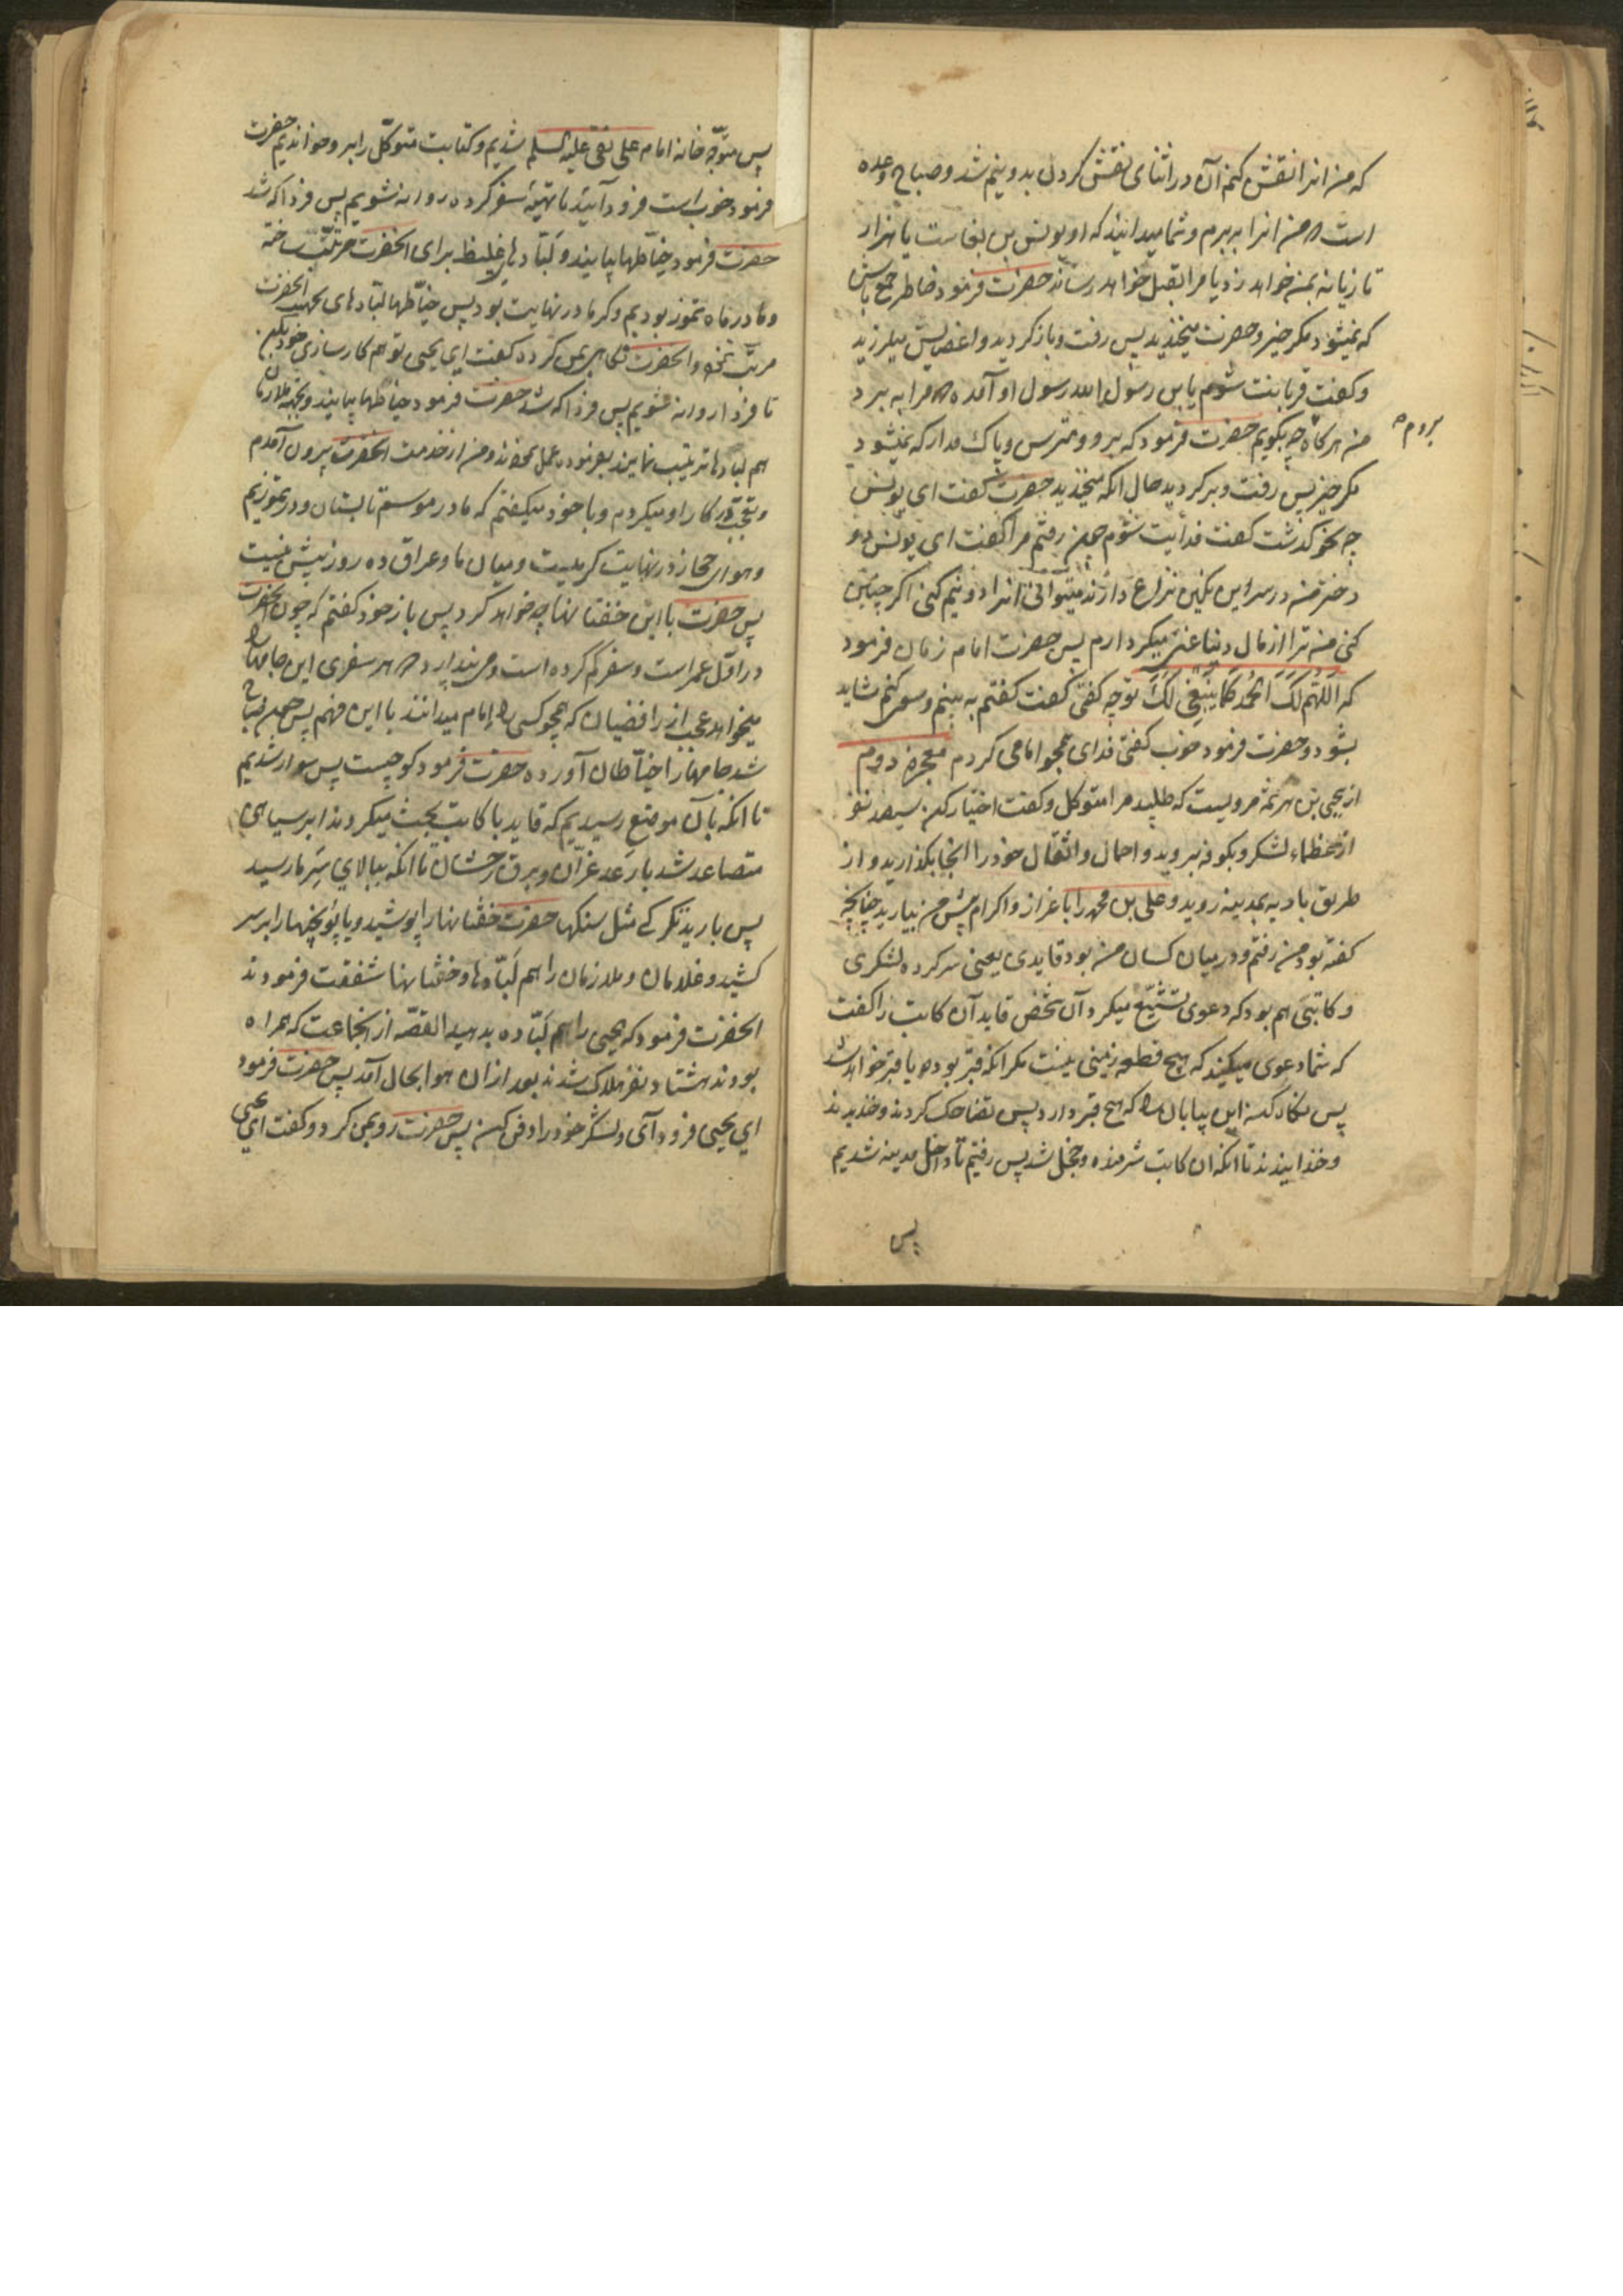 که من انرا نقش کنم آن در اثنای نقش کردن بدو نیم شد و صباح وعده
است که من انرا به برم و شما میدانید که او یونس بن بغاست یا هزار
تازیانه بمن خواهد زد یا مرا بقتل خواهد رساند حضرت فرمود خاطر جمع باش
که نمیشود مکر خیر و حضرت میخندید پس رفت و باز کردید و اعضایش میلرزید
و کفت قربانت شوم یابن رسول الله رسول او آمده که مرا به برد
من هرکاه چه بکویم حضرت فرمود که برو و مترس و باک مدار که نمیشود
بروم
مکر خیر پس رفت و برکردید حال انکه میخندید حضرت کفت ای یونس
چه بحو کذشت کفت فدایت شوم چون رفتم مرا کفت ای یونس دو
دختر من در سر این نکین نزاع دارند میتوانی انرا دو نیم کنی اکر چنین
کنی من ترا از مال دنیا غنی میکردارم پس حضرت امام زمان فرمود
که اَللّهُمَّ لَکَ الْحَمْدُ کَمَا یَنْبَغِی لَکَ تو چه کفتی کفت کفتم به بینم و سعی کنم شاید
بشود و حضرت فرمود خوب کفتی فدای همچو امامی کردم معجزه دوم
از یحیی بن هرثمه مرویست که طلبید مرا متوکل و کفت اختیار کن سیصد نفر
از عظماء لشکر و بکوفه بروید و احمال و اثقال خود را انجا بکذارید و از
طریق بادیه بمدینه روید و علی بن محمد را باعزاز و اکرام پیش من بیارید چنانچه
کفته بود من رفتم و در میان کسان من بود قایدی یعنی سرکرده لشکری
و کاتبی هم بود که دعوی تشیّع میکرد آن شخص قاید آن کاتب را کفت
که شما دعوی میکنید که هیچ قطعه زمینی نیست مکر انکه قبر بوده یا قبر خواهد شد
پس نکاه کن این بیابان را که هیچ قبر دارد پس تضاحک کردند و خندیدند
و خندانیدند تا انکه ان کاتب شرمنده و خجل شد پس رفتیم تا داخل مدینه شدیم
پس
پس متوجّه خانه امام علی نقی علیه السلم شدیم و کتابت متوکّل را برو خواندیم حضرت
فرمود خوب است فرود آئید تا تهیّهٔ سفر کرده روانه شویم پس فردا که شد
حضرت فرمود خیّاطها بیایند و لَبّادهای غلیظ برای انحضرت مرتّب ساخته
و ما در ماه تموز بودیم و کرما در نهایت بود پس خیّاطها لبّادهای بجهت انحضرت
مرتّب نمود و انحضرت نکاه بمن کرده کفت ای یحیی تو هم کارسازی خود بکن
تا فردا روانه شویم پس فردا که شد حضرت فرمود خیاطها بیایند و بجهة ملازمان
هم لبادها ترتیب نمایند بفرموده عمل نمودند و من از خدمت انحضرت بیرون آمدم
و تعجّب در کار او میکردم و با خود میکفتم که ما در موسم تابستان و در تموزیم
و هوای حجاز در نهایت کرمیست و میان ما و عراق ده روز بیش نیست
پس حضرت با این خفتانها چه خواهد کرد پس باز خود کفتم که چون انحضرت
در اوّل عمر است و سفر کم کرده است و می پندارد که هر سفری این جامها را
میخواهد عجب از رافضیان که همچو کسی را امام میدانند با این فهم پس چون صباح
شد جامها را خیّاطان آورده حضرت فرمود کوچست پس سوار شدیم
تا انکه بآن موضع رسیدیم که قاید با کاتب بحث میکردند ابر سیاهی
متصاعد شد با رَعد غرّان و برق رخشان تا انکه ببالای سَرِ ما رسید
پس بارید تکرکی مثل سنکها حضرت خفتانها را پوشید و یاپونچیها را بر سر
کشید و غلامان و ملازمان را هم لَبّادها و خفتانها شفقت فرمودند
انحضرت فرمود که یحیی را هم لَبّاده بدهید القصّه از انجماعت که همراه
بودند هشتاد نفر هلاک شدند بعد از ان هوا بحال آمد پس حضرت فرمود
ای یحیی فرود آی و لشکر خود را دفن کن پس حضرت رو بمن کرد و کفت ای یحیی